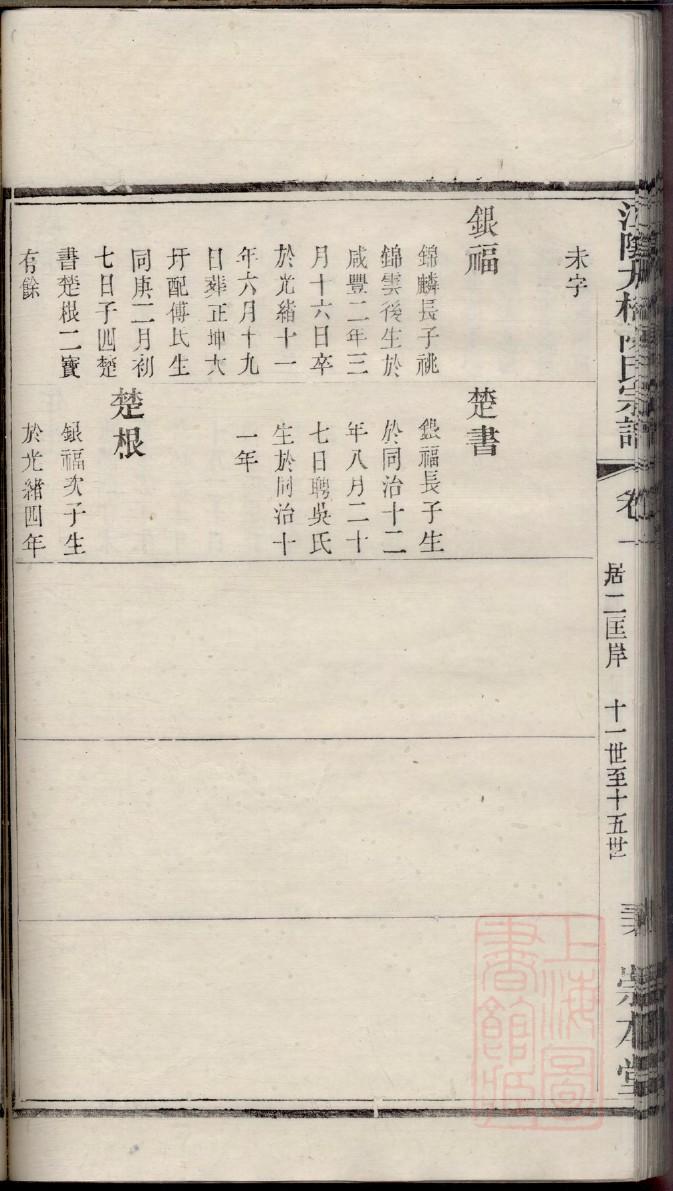 未字
銀福
錦麟長子祧
錦雲後生於
咸豐二年三
月十六日卒
於光緒十一
年六月十九
日葬正坤大
圩配傅氏生
同庚二月初
七日子四楚
書楚根二寶
有餘
楚書
銀福長子生
於同治十二
年八月二十
七日聘吳氏
生於同治十
一年
楚根
銀福次子生
於光緒四年
氏宗譜
卷一
居二匡岸
十一世至十五世
崇本堂
上海圖
書館藏